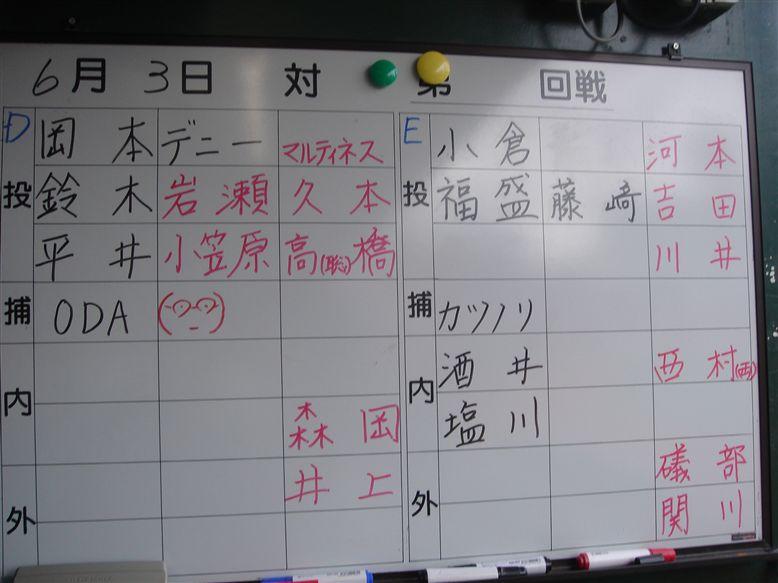 6月 3日 対 第 回戦
D 岡本 デニー マルティネス E 小倉 河本
投 鈴木 岩瀬 久本 投 福盛 藤崎 吉田
平井 小笠原 高(聡)橋 川井
捕 ODA 捕 カツノリ
内 酒井 内 西村(西)
森岡 塩川
井上 礒部
外 外 関川